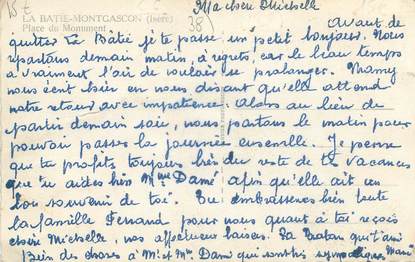 Ma chère Michelle
LA BATIE-MONTGASCON (Isère)
Place du Monument
38
Avant de
quitter La Batie je te passe un petit bonjour. Nous
repartons demain matin, à regrets, car le beau temps
a vraiment l'air de vouloir se prolonger. Mamy
nous écrit hier en nous disant qu'elle attend
notre retour avec impatience. Alors au lieu de
partir demain soir, nous partons le matin pour
pouvoir passer la journée ensemble. Je pense
que tu profites toujours bien du reste de tes vacances
que tu aides bien Mme Damé afin qu'elle ait un
bon souvenir de toi. Tu embrasseras bien toute
la famille Ferrand pour nous quant à toi reçois
chère Michelle, nos affectueux baisers. Ta Tatan qui t'aime
Bien des choses à Mr et Mme Damé qui sont si sympathiques